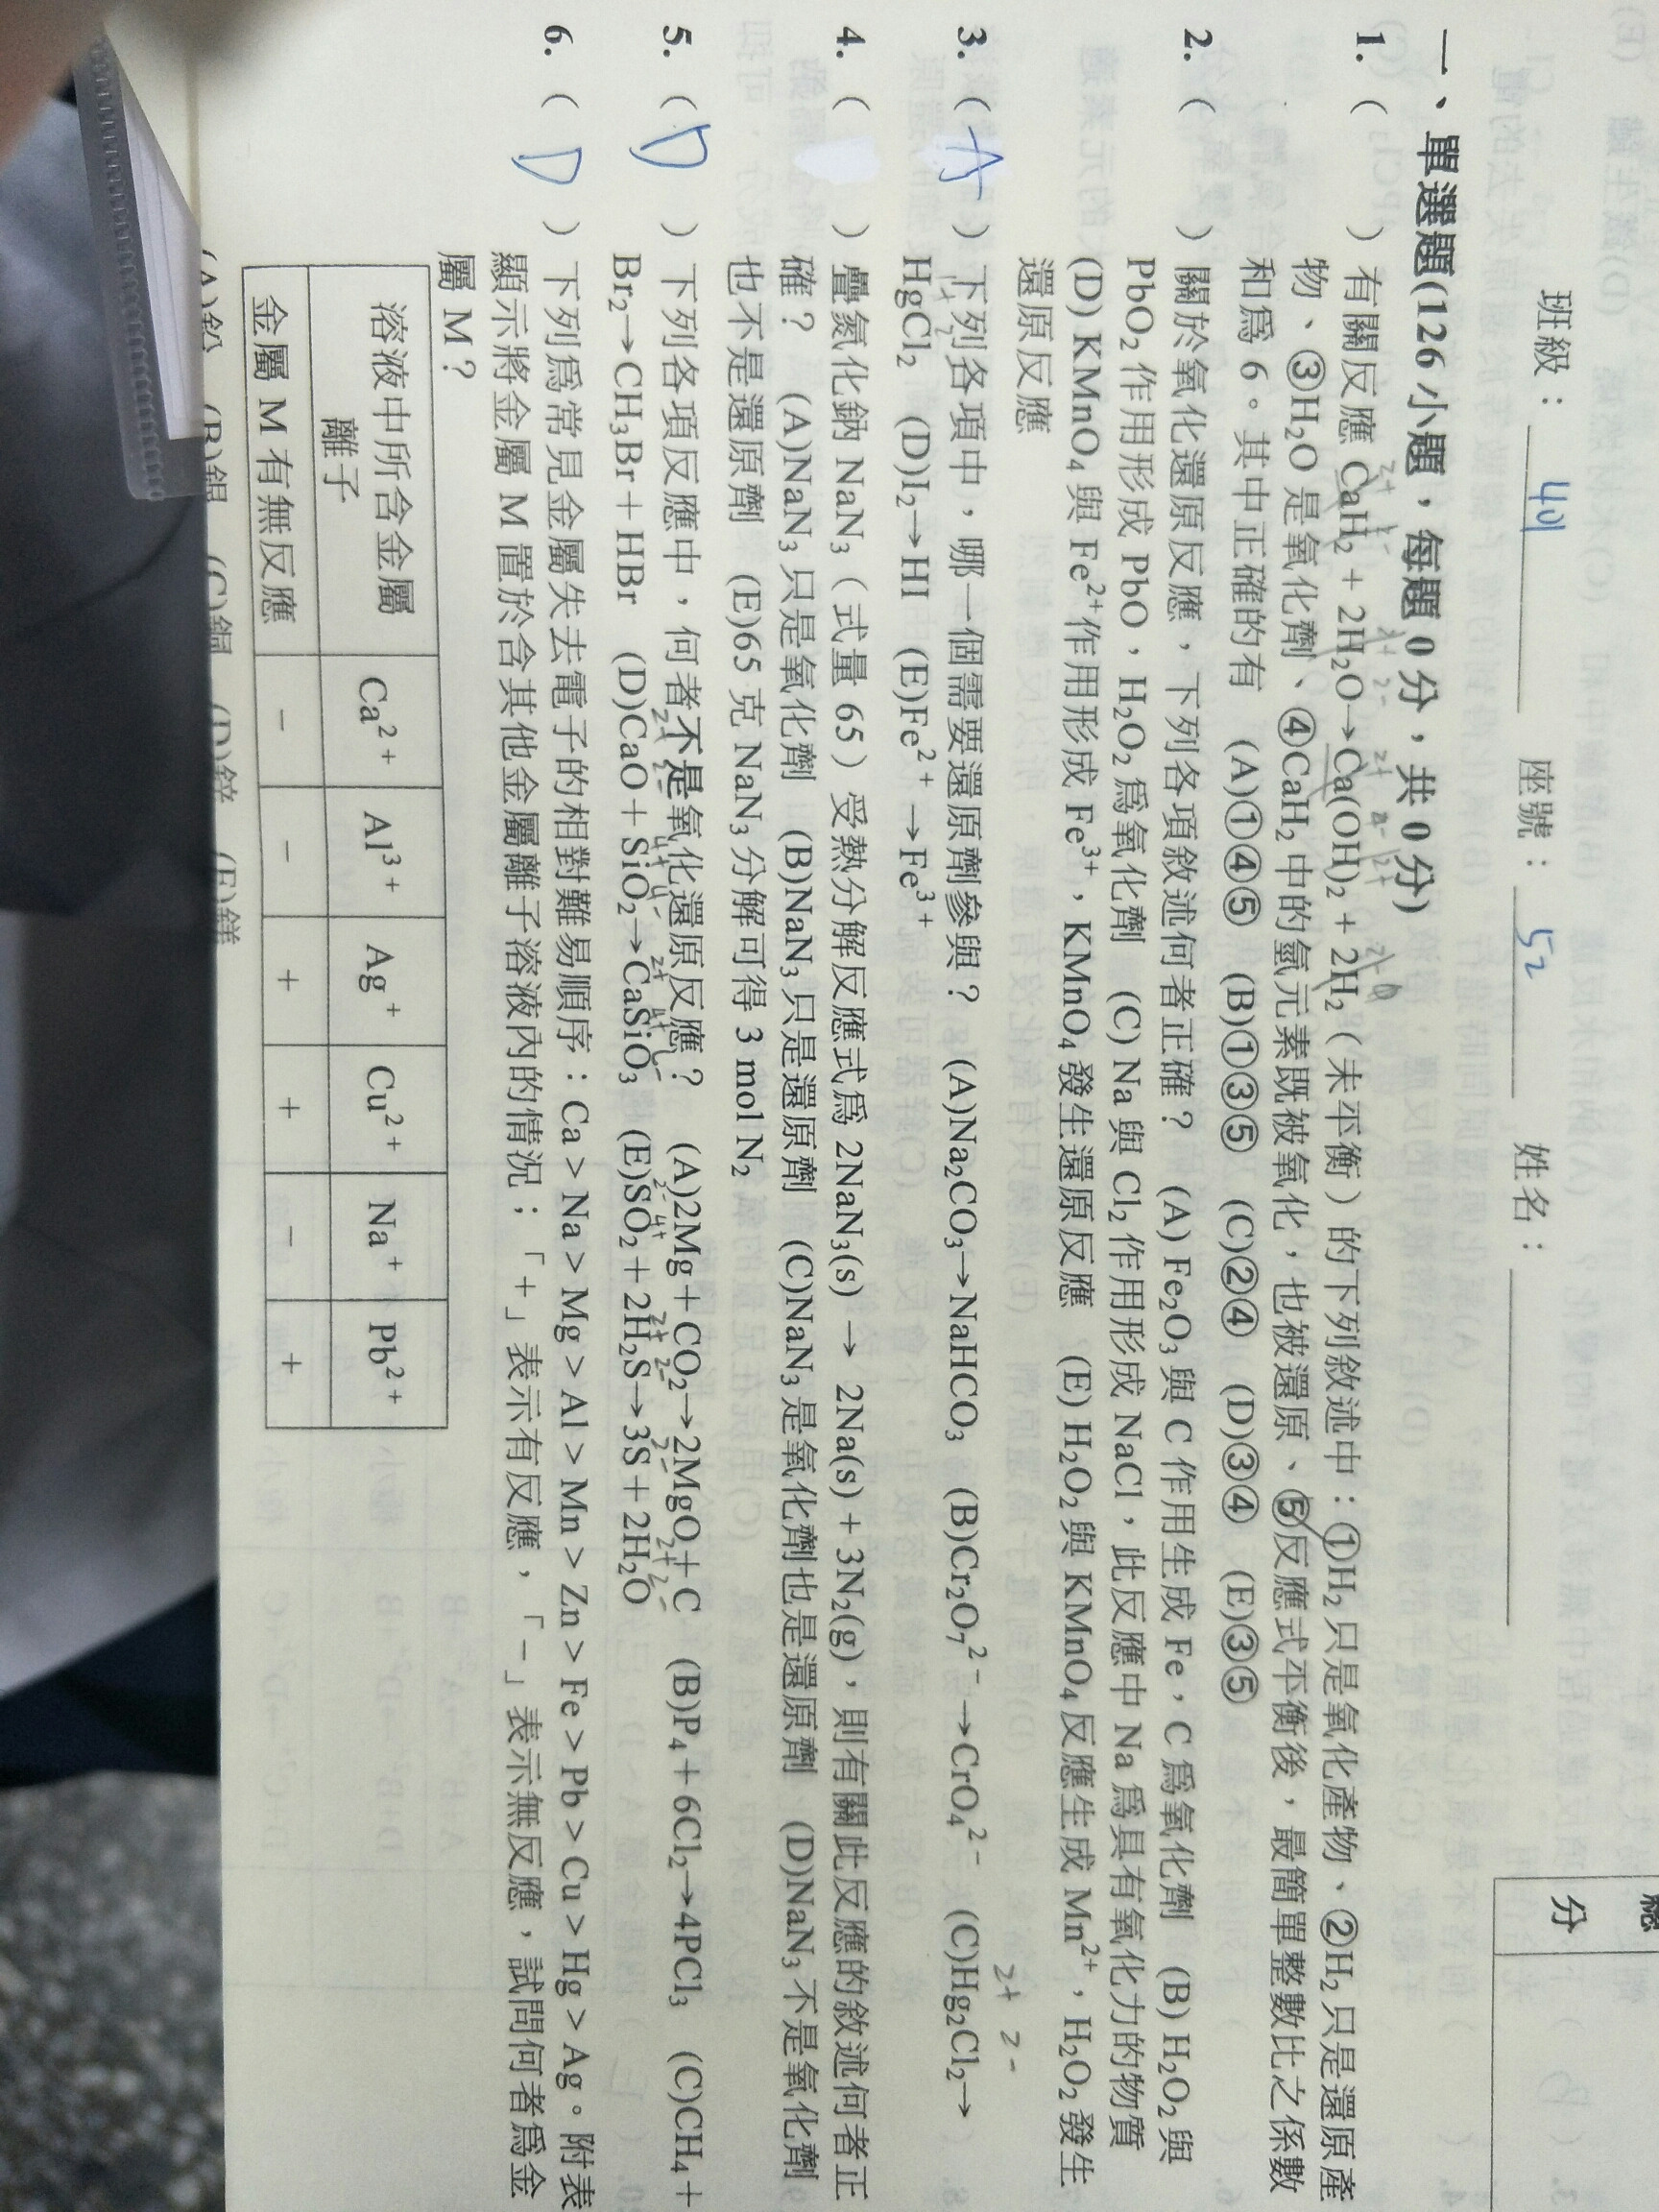 班級：401 座號：52 姓名：
總
分
一、單選題(126 小題，每題 0 分，共 0 分)
1. ( ) 有關反應 CaH₂ + 2H₂O→Ca(OH)₂ + 2H₂（未平衡）的下列敘述中：①H₂ 只是氧化產物、②H₂ 只是還原產
物、③H₂O 是氧化劑、④CaH₂ 中的氫元素既被氧化，也被還原、⑤反應式平衡後，最簡單整數比之係數
和爲 6。其中正確的有 (A)①④⑤ (B)①③⑤ (C)②④ (D)③④ (E)③⑤
2. ( ) 關於氧化還原反應，下列各項敘述何者正確？ (A) Fe₂O₃ 與 C 作用生成 Fe，C 爲氧化劑 (B) H₂O₂ 與
PbO₂ 作用形成 PbO，H₂O₂ 爲氧化劑 (C) Na 與 Cl₂ 作用形成 NaCl，此反應中 Na 爲具有氧化力的物質
(D) KMnO₄ 與 Fe²⁺作用形成 Fe³⁺，KMnO₄ 發生還原反應 (E) H₂O₂ 與 KMnO₄ 反應生成 Mn²⁺，H₂O₂ 發生
還原反應
3. ( A ) 下列各項中，哪一個需要還原劑參與？ (A)Na₂CO₃→NaHCO₃ (B)Cr₂O₇²⁻→CrO₄²⁻ (C)Hg₂Cl₂→
HgCl₂ (D)I₂→HI (E)Fe²⁺→Fe³⁺
4. ( ) 疊氮化鈉 NaN₃（式量 65）受熱分解反應式爲 2NaN₃(s) → 2Na(s) + 3N₂(g)，則有關此反應的敘述何者正
確？ (A)NaN₃ 只是氧化劑 (B)NaN₃ 只是還原劑 (C)NaN₃ 是氧化劑也是還原劑 (D)NaN₃ 不是氧化劑
也不是還原劑 (E)65 克 NaN₃ 分解可得 3 mol N₂
5. ( D ) 下列各項反應中，何者不是氧化還原反應？ (A)2Mg＋CO₂→2MgO＋C (B)P₄＋6Cl₂→4PCl₃ (C)CH₄＋
Br₂→CH₃Br＋HBr (D)CaO＋SiO₂→CaSiO₃ (E)SO₂＋2H₂S→3S＋2H₂O
6. ( D ) 下列爲常見金屬失去電子的相對難易順序：Ca > Na > Mg > Al > Mn > Zn > Fe > Pb > Cu > Hg > Ag。附表
顯示將金屬 M 置於含其他金屬離子溶液內的情況；「＋」表示有反應，「－」表示無反應，試問何者爲金
屬 M？
溶液中所含金屬離子 Ca²⁺ Al³⁺ Ag⁺ Cu²⁺ Na⁺ Pb²⁺
金屬 M 有無反應 － － ＋ ＋ － ＋
(A)鉛 (B)銀 (C)銅 (D)鋅 (E)鎂